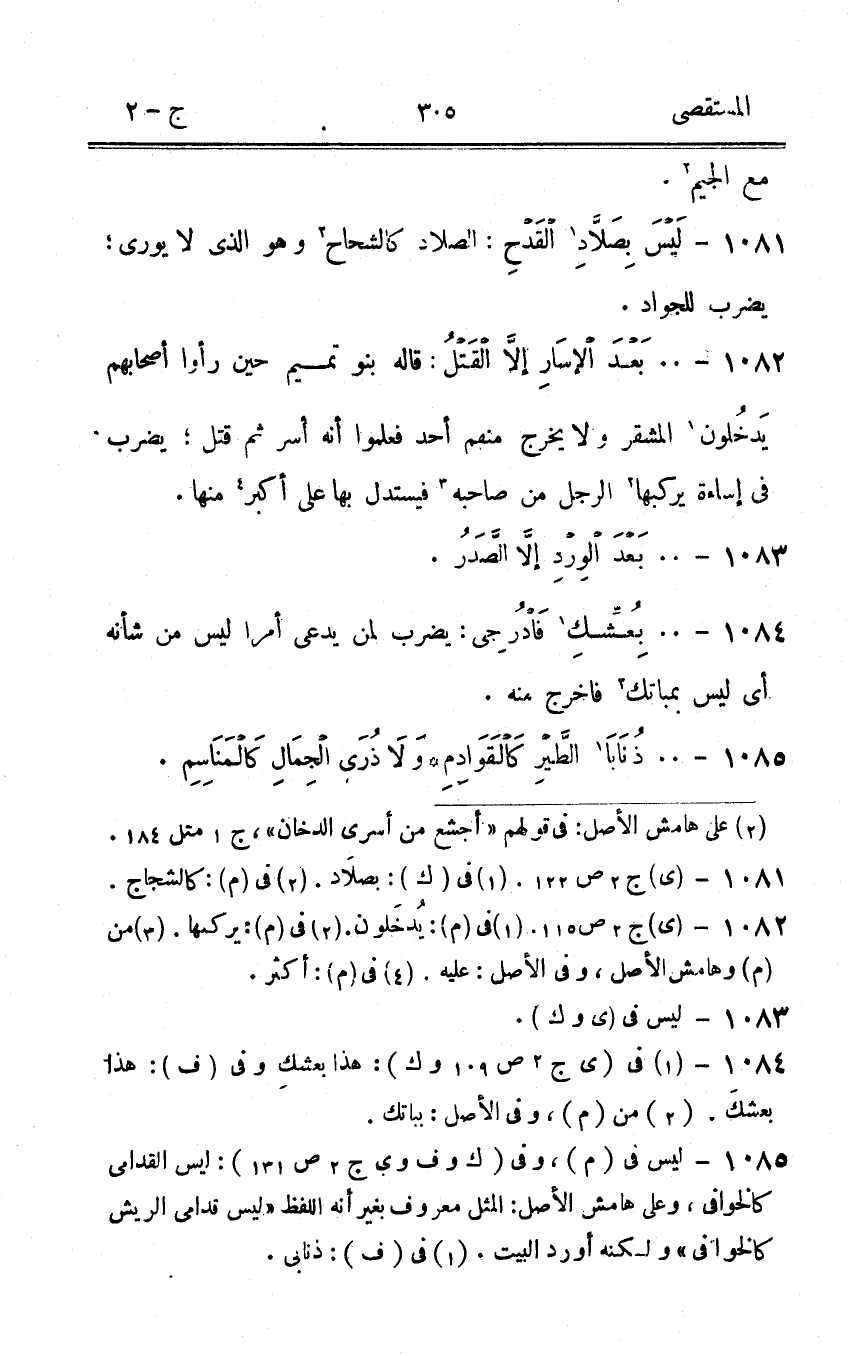 المستقصى ٣٠٥ ج – ٢
مع الجيم٢ .
١٠٨١ – لَيْسَ بِصَلَّادِ١ الْقَدْحِ : الصلاد كالشحاح٢ وهو الذى لا يورى ؛
يضرب للجواد .
١٠٨٢ – ٠٠ بَعْدَ الْإسَارِ إلَّا الْقَتْلُ : قاله بنو تمـيم حين رأوا أصحابهم
يَدخُلون١ المشقر ولا يخرج منهم أحد فعلموا أنه أسر ثم قتل ؛ يضرب
فى إساءة يركبها٢ الرجل من صاحبه٣ فيستدل بها على أكبر٤ منها .
١٠٨٣ – ٠٠ بَعْدَ الْوِرْدِ إلَّا الصَّدَرُ .
١٠٨٤ – ٠٠ بِعُشِّـكِ١ فَادْرُجِى : يضرب لمن يدعى أمرا ليس من شأنه
أى ليس بمباتك٢ فاخرج منه .
١٠٨٥ – ٠٠ ذُنَابَا١ الطَّيْرِ كَالْقَوَادِمِ * وَلَا ذُرَى الْجِمَالِ كَالْمَنَاسِمِ .
(٢) على هامش الأصل: فى قولهم « أجشع من أسرى الدخان»، ج ١ مثل ١٨٤ .
١٠٨١ – (ى) ج ٢ ص ١٢٢ . (١) فى ( ك ) : بصلَاد . (٢) فى (م) : كالشجاج .
١٠٨٢ – (ى) ج ٢ ص ١١٥. (١) فى (م): يُدخَلون. (٢) فى (م): يركمها . (٣) من
(م) وهامش الأصل ، وفى الأصل : عليه . (٤) فى (م): أكثر .
١٠٨٣ – ليس فى (ى و ك ) .
١٠٨٤ – (١) فى ( ى ج ٢ ص ١٠٩ و ك ) : هذا بعشكِ وفى ( ف ) : هذا
بعشكَ . ( ٢ ) من ( م ) ، وفى الأصل : بباتك .
١٠٨٥ – ليس فى ( م ) ، وفى ( ك و ف و ى ج ٢ ص ١٣١ ) : ليس القدامى
كالخوافى ، وعلى هامش الأصل: المثل معروف بغير أنه اللفظ «ليس قدامى الريش
كالخوافى » ولـكنه أورد البيت . (١) فى ( ف ) : ذنابى .